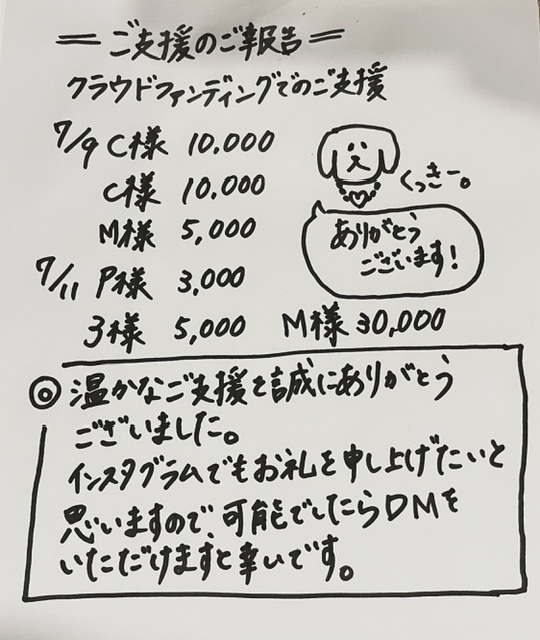 ＝ご支援のご報告＝
クラウドファンディングでのご支援
7/9 C様 10,000
C様 10,000
M様 5,000
くっきー。
ありがとう
ございます！
7/11 P様 3,000
3様 5,000 M様 30,000
◎温かなご支援を誠にありがとう
ございました。
インスタグラムでもお礼を申し上げたいと
思いますので、可能でしたらDMを
いただけますと幸いです。